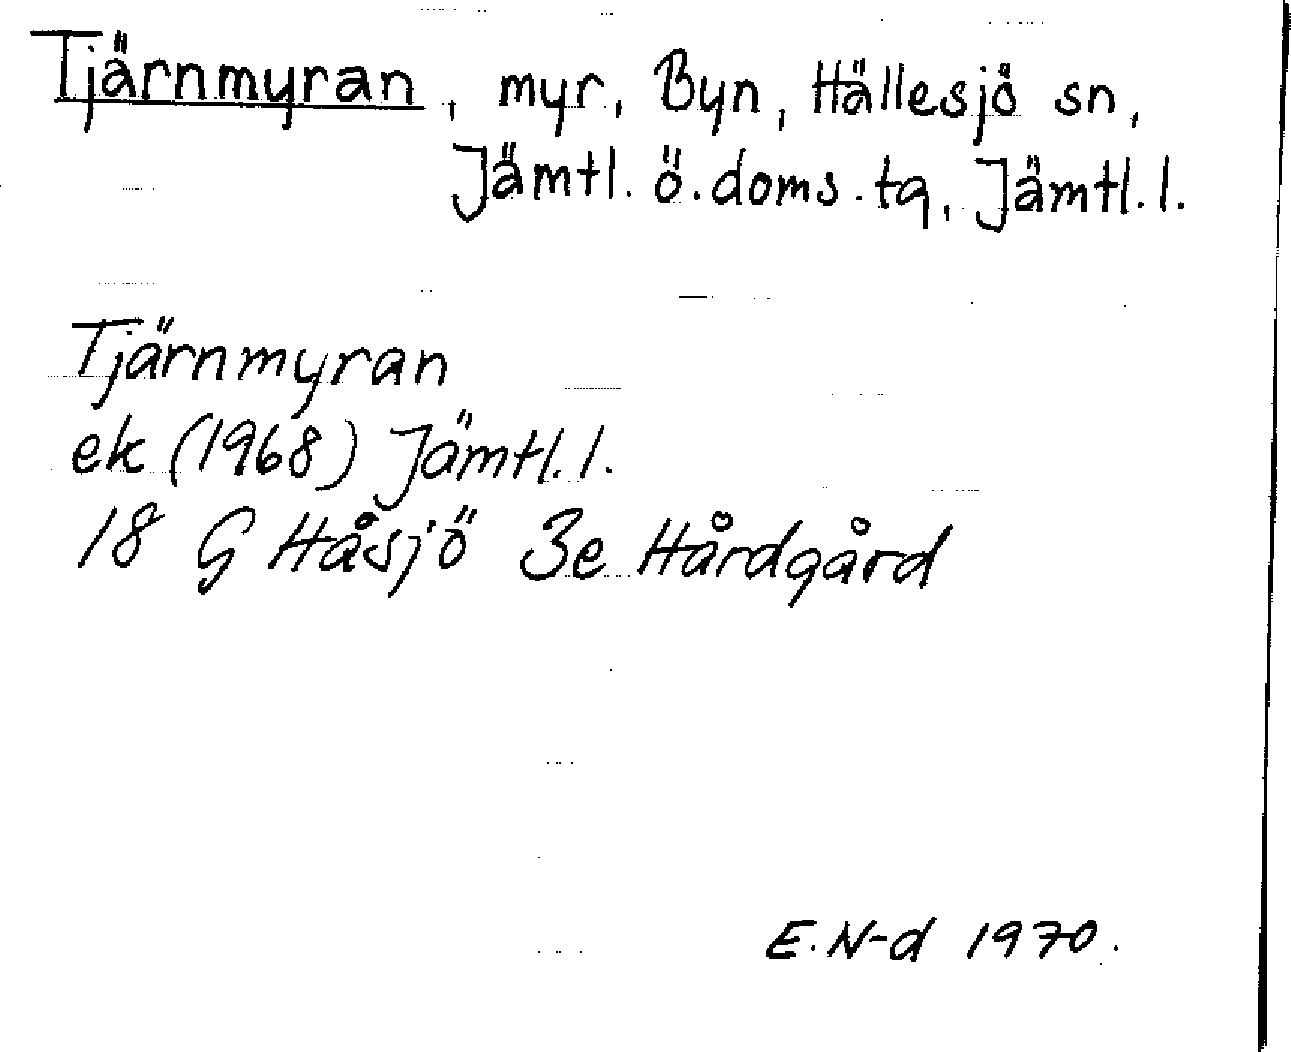 Tjärnmyran, myr, Byn, Hällesjö sn,
Jämtl. ö. doms. tg, Jämtl. l.
Tjärnmyran
ek (1968) Jämtl. l.
18 G Håsjö 3e Hårdgård
E. N-d 1970.